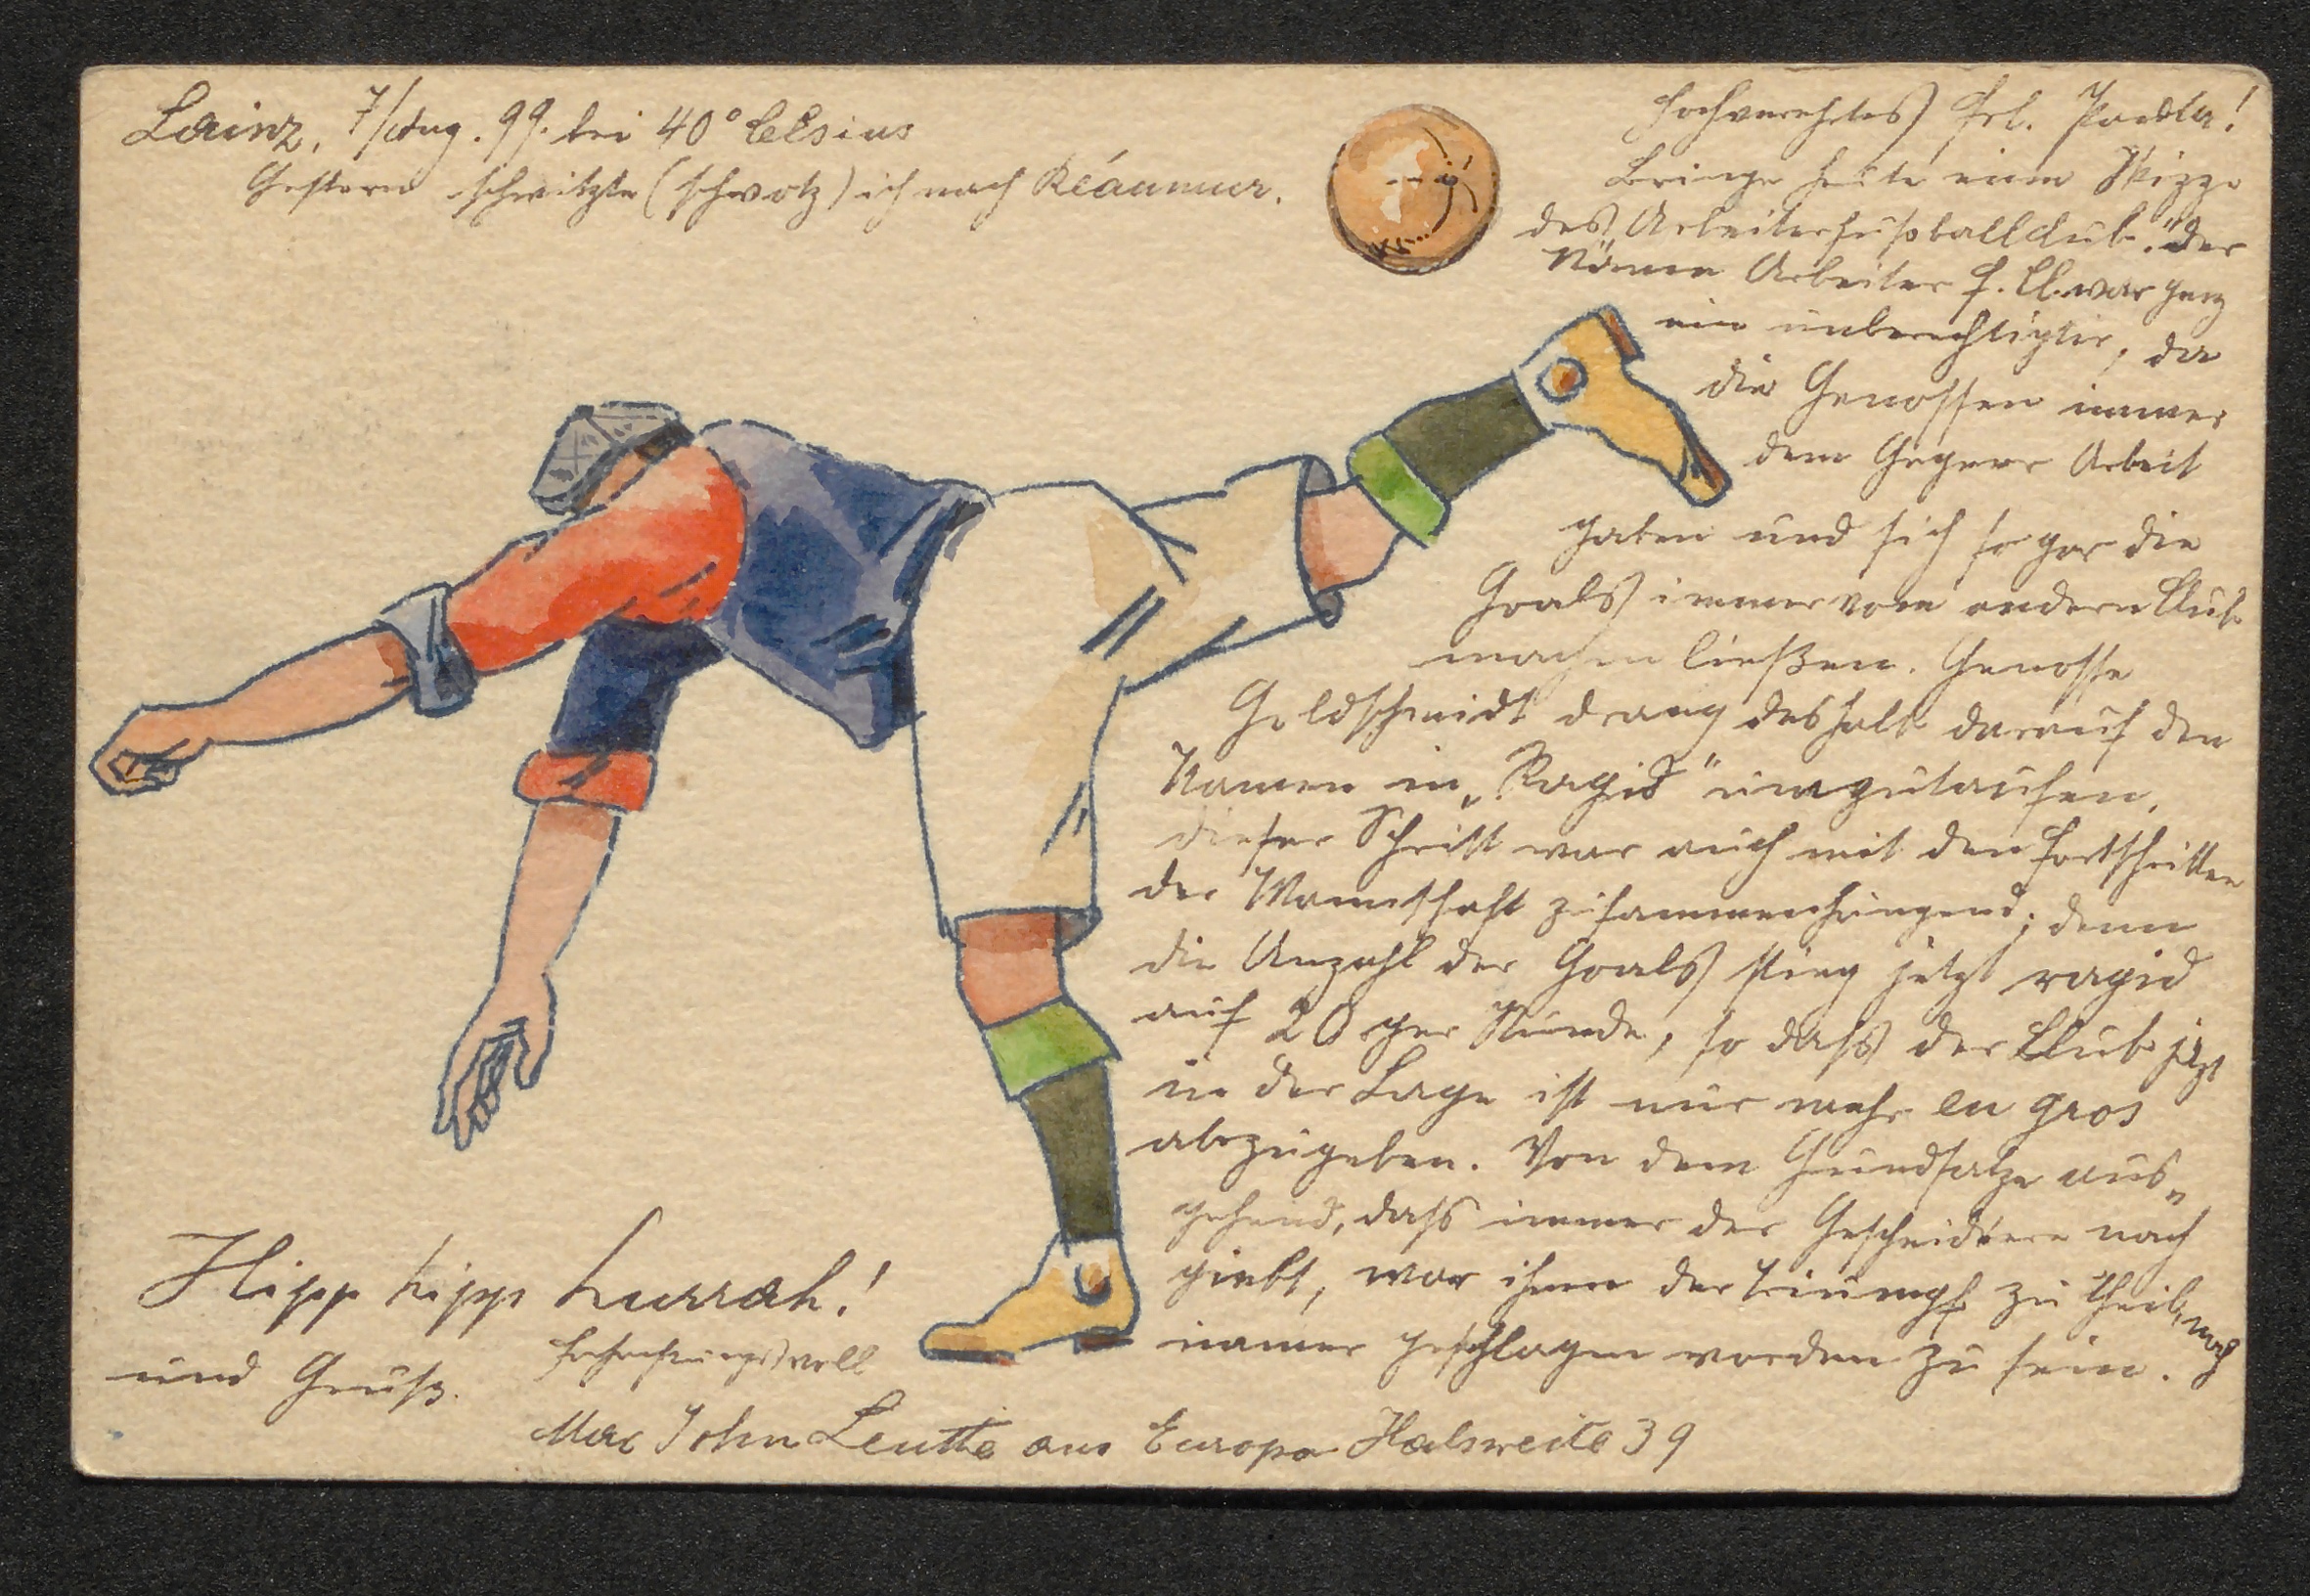 Lainz, 7/Aug. 99. bei 40° Celsius
Gestern schwitzte (schwotz) ich nach Réaumur.
Hochverehrtes Frl.
Bringe heute eine Skizze
des Arbeiterfussballclub. "Der
Name Arbeiter F. Cl. war ganz
ein unberechtigter, da
die Genossen immer
dem Gegner Arbeit
gaben und sich sogar die
Goals immer vom andern Club
machen ließen. Genosse
Goldschmidt drang deshalb darauf den
Namen in „Rapid" umzutaufen.
Dieser Schritt war auch mit den Fortschritten
der Mannschaft zusammenhängend; denn
die Anzahl der Goals stieg jetzt rapid
auf 20 per Stunde, so dass der Club jetzt
in der Lage ist nur mehr en gros
abzugeben. Von dem Grundsatze aus„
gehend, dass immer der Gescheidtere nach
giebt, war ihnen der Triumpf zu theil, noch
immer geschlagen worden zu sein.
Hipp hipp hurrah!
und Gruß.
Hochachtungsvoll
John Leuthe aus Europa Halsweite 39